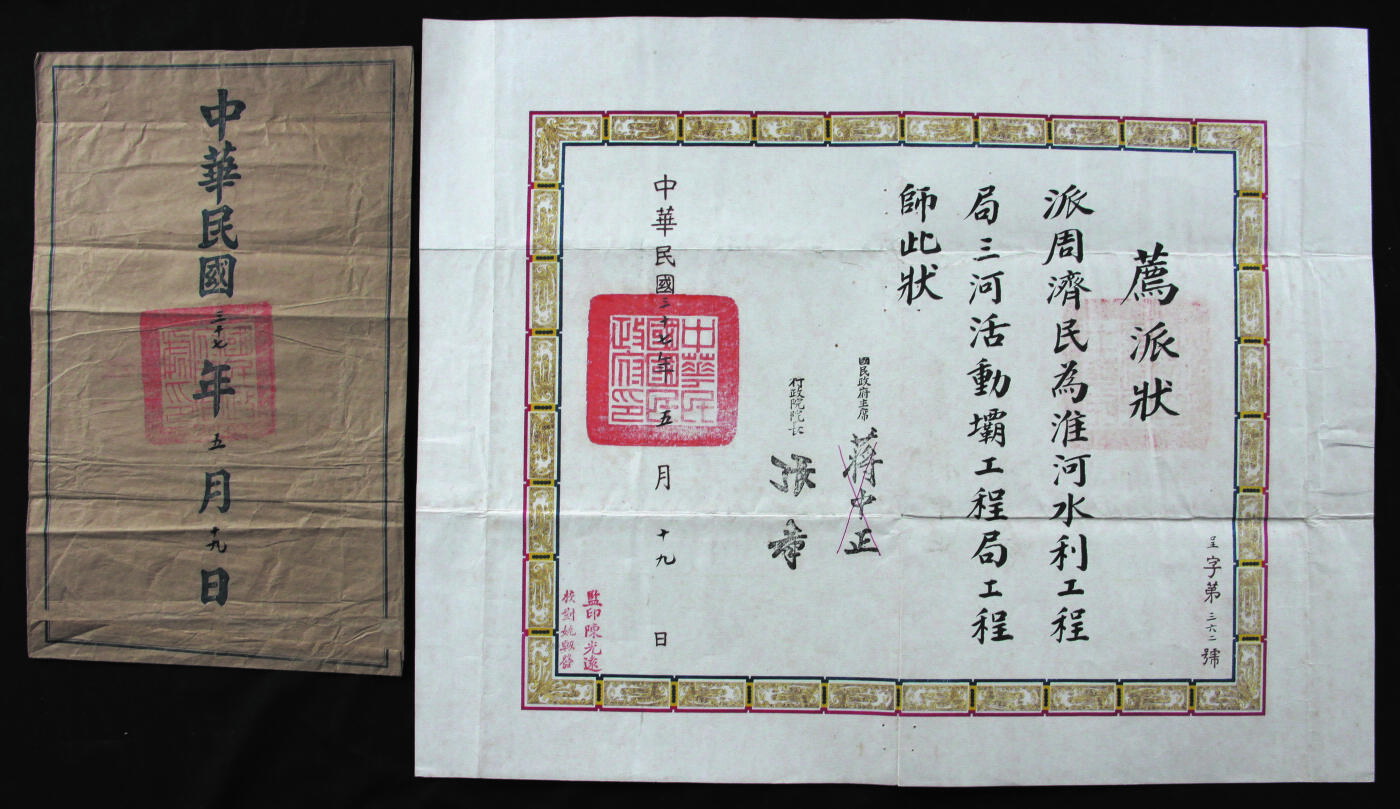 中華民國三十七年五月十九日
薦派狀
派周濟民為淮河水利工程
局三河活動壩工程局工程
師此狀
國民政府主席 蔣中正
行政院院長 張羣
中華民國三十七年五月十九日
中華民國國民政府印
監印陳光遠
校對姚
呈字第三六二號